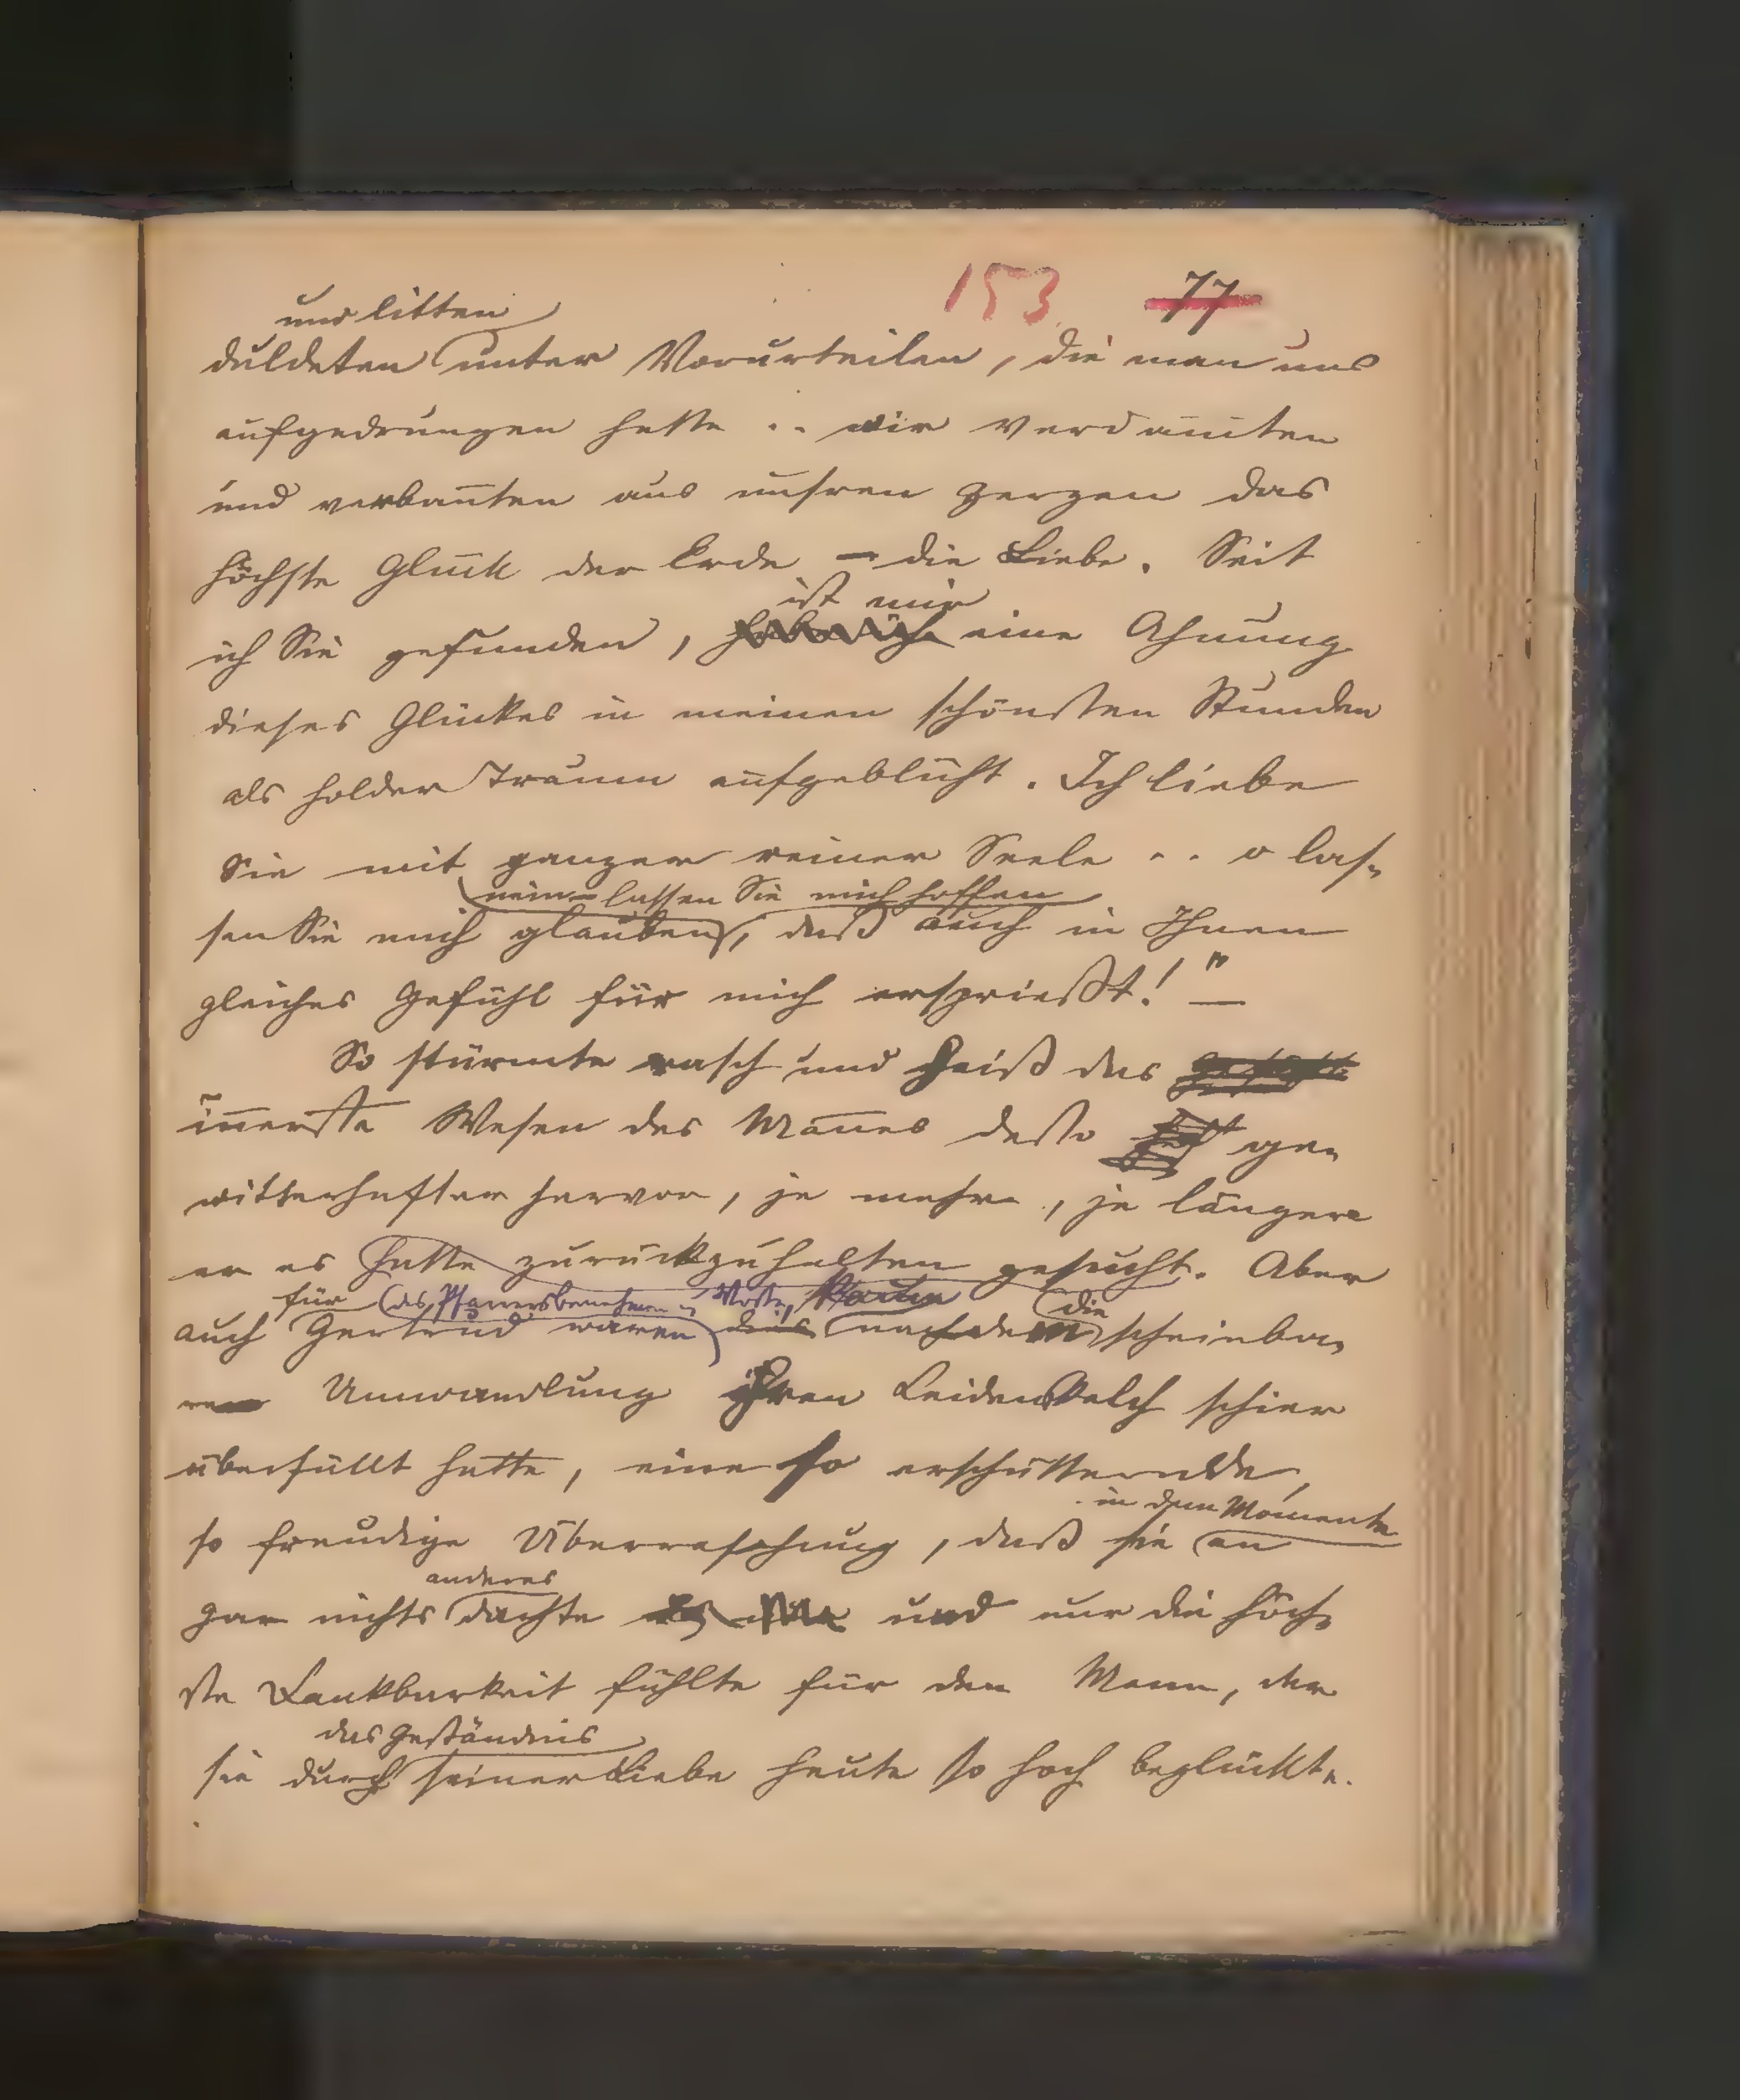 153 77
und litten
duldeten unter Vorurteilen, die man uns
aufgedrungen hatte .. wir verdam̄ten
und verban̄ten aus unsren Herzen das
höchste Glück der Erde – die Liebe. Seit
ist mir
ich Sie gefunden, habe ich eine Ahnung
dieses Glückes in meinen schönsten Stunden
als holder Traum aufgeblüht. Ich liebe
Sie mit ganzer reiner Seele .. o las-
nein – lassen Sie mich hoffen
sen Sie mich glauben, daß auch in Ihnen
gleiches Gefühl für mich ersprießt!" –
So stürmte rasch und heiß das
in̄erste Wesen des Man̄es desto ge-
witterhafter hervor, je mehr, je länger
er es hatte zurückzuhalten gesucht. Aber
für des Pfarrers benehmen u Worte, die
auch Gertrud waren nachdem scheinba-
re Umwandlung ihren Leidenskelch schier
überfüllt hatte, eine so erschütternde,
in dem Momente
so freudige Überraschung, daß sie an
anderes
gar nichts dachte und nur die höch-
ste Dankbarkeit fühlte für den Mann, der
das Geständnis
sie durch seiner Liebe heute so hoch beglückte.